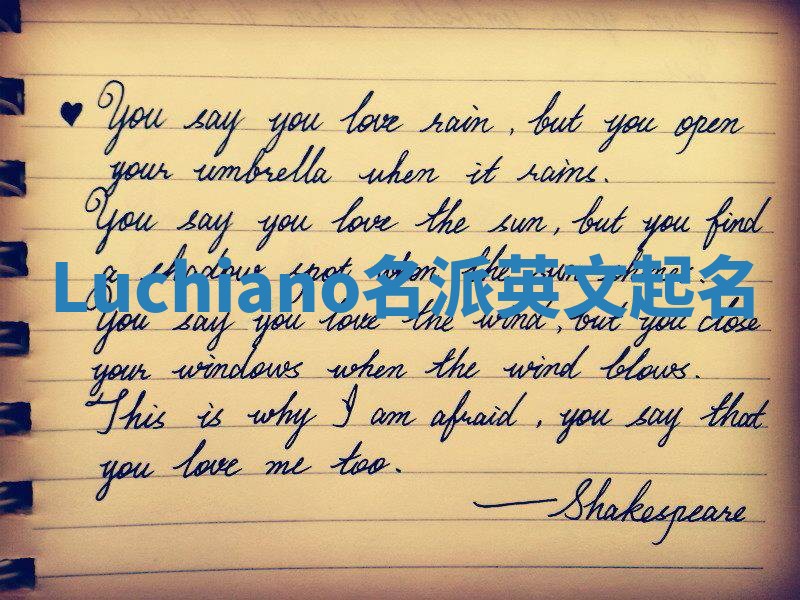 ♥ You say you love rain, but you open
your umbrella when it rains.
You say you love the sun, but you find
a shadow spot when the sun shines.
Luchiano名派英文起名
You say you love the wind, but you close
your windows when the wind blows.
This is why I am afraid, you say that
you love me too.
—Shakespeare